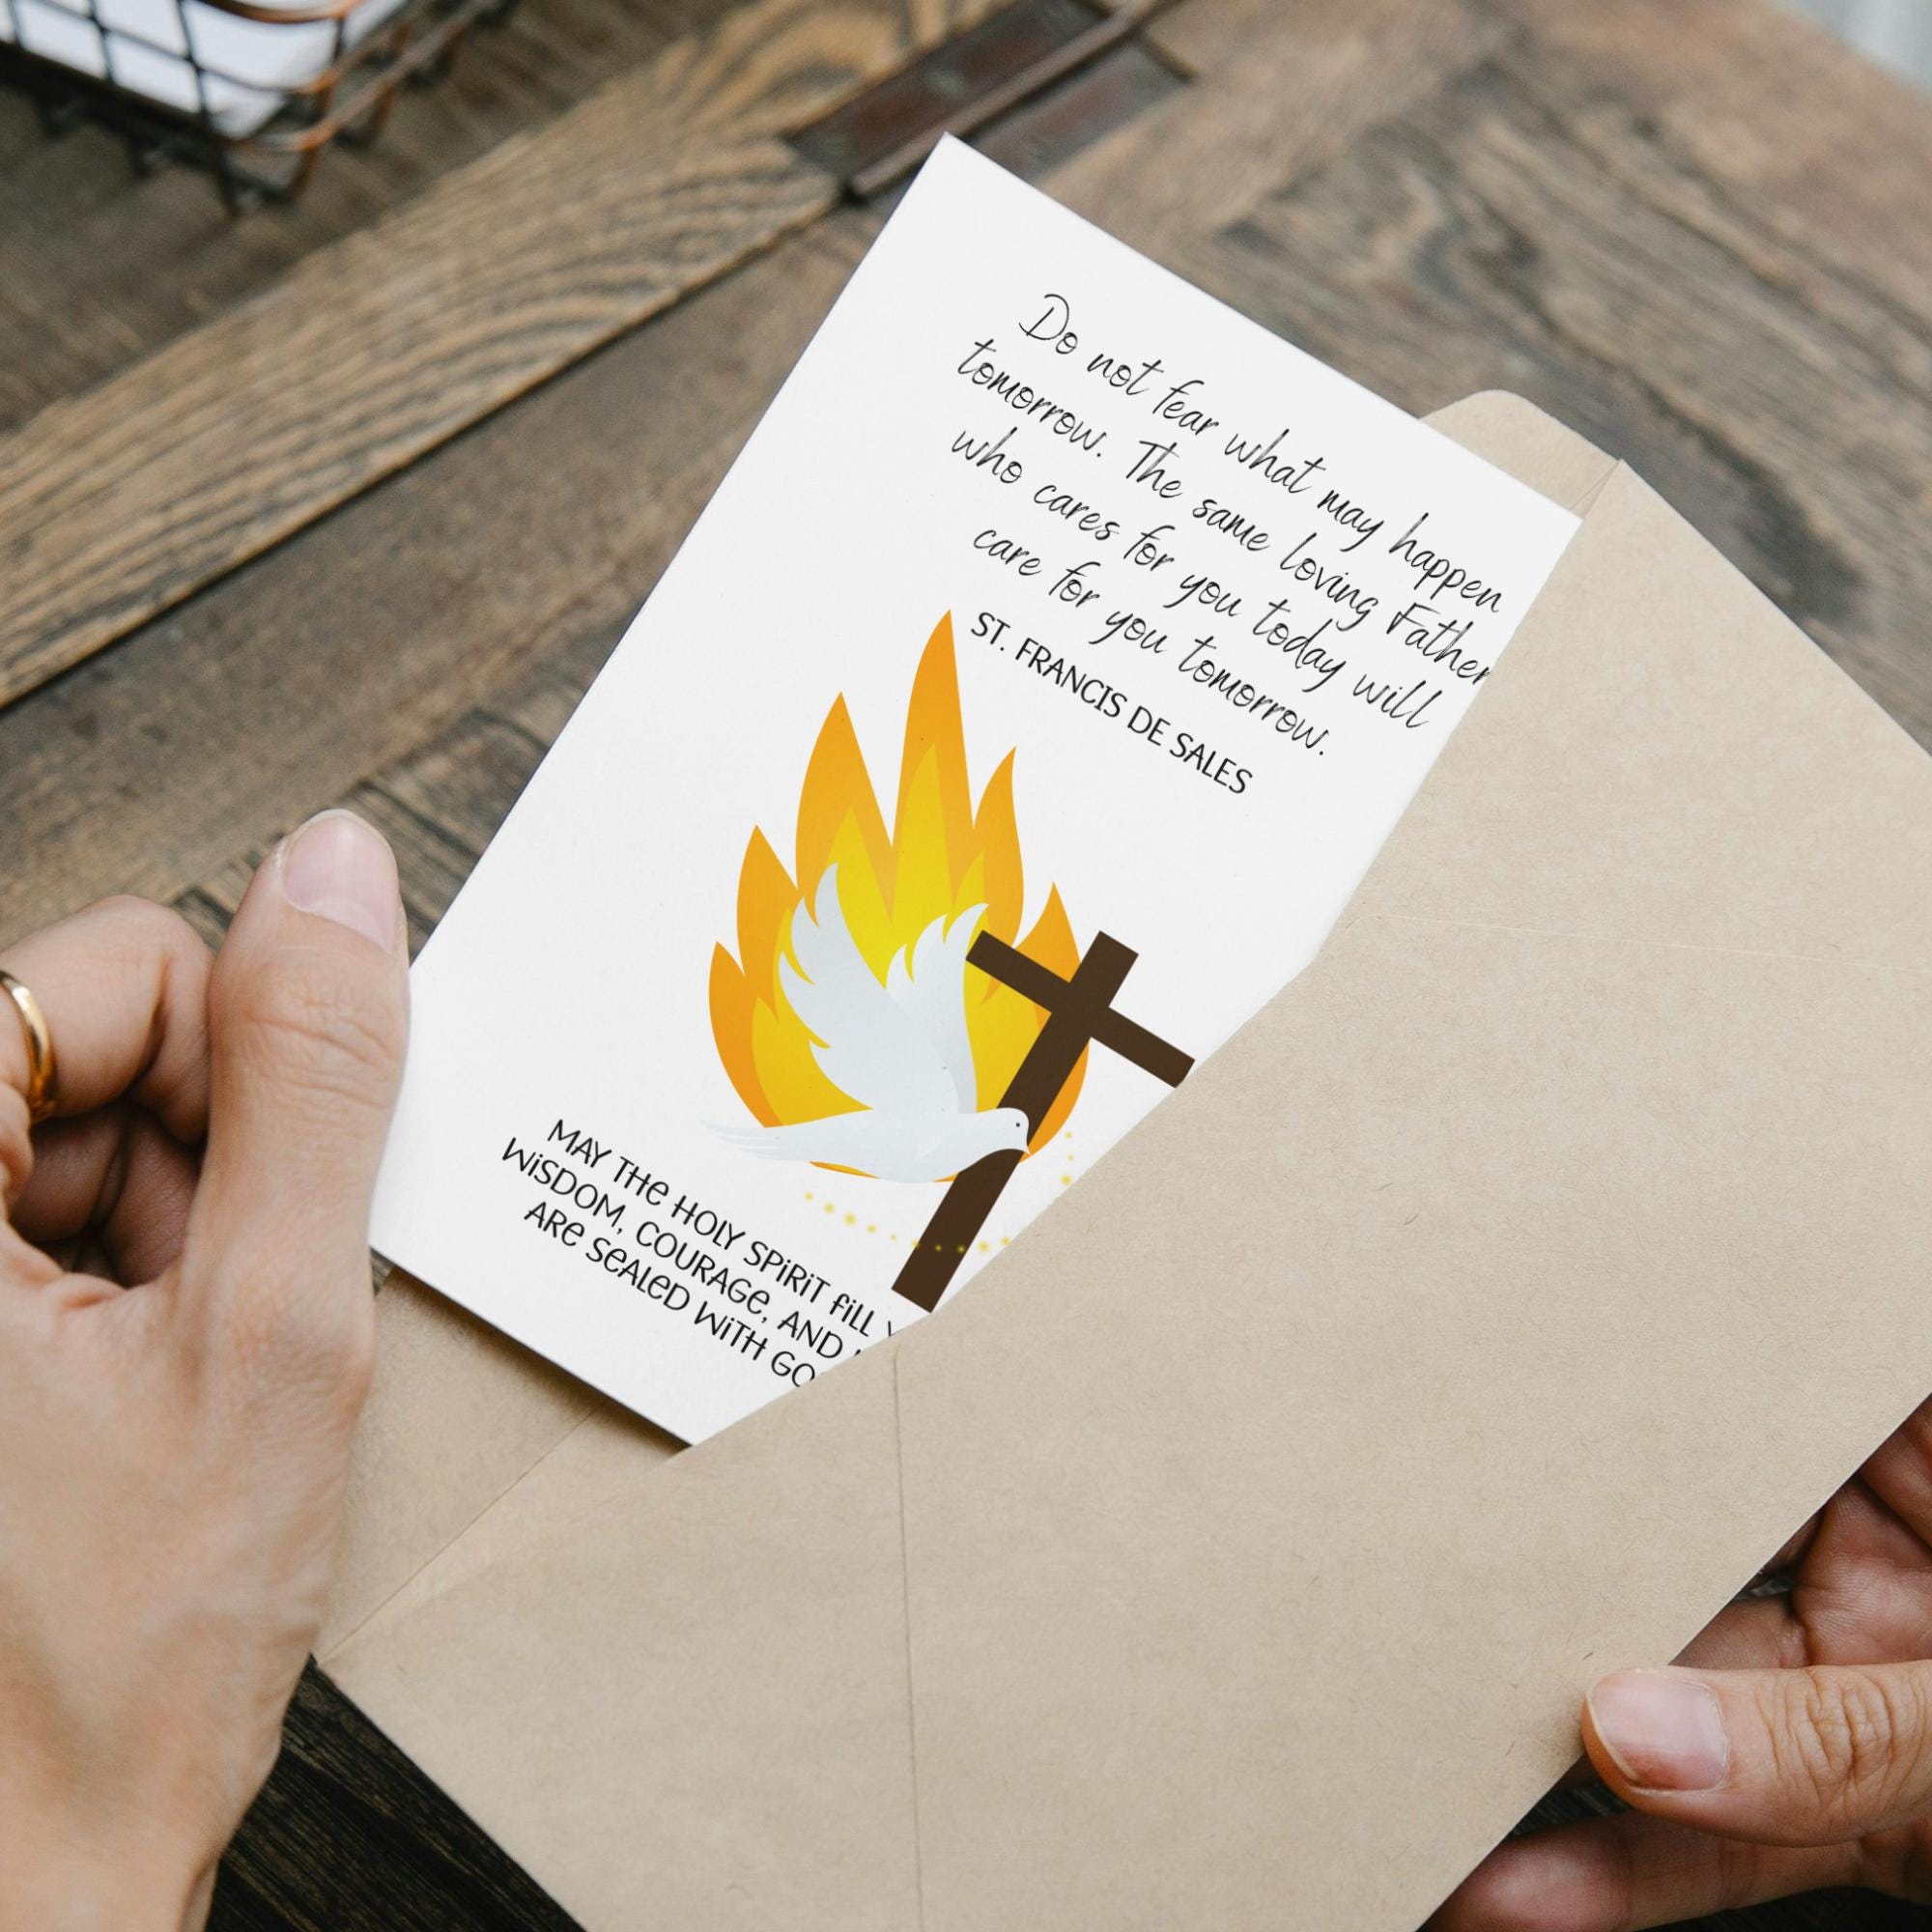 Do not fear what may happen
tomorrow. The same loving Father
who cares for you today will
care for you tomorrow.
ST. FRANCIS DE SALES
MAY THE HOLY SPIRIT FILL
WISDOM, COURAGE, AND
ARE SEALED WITH